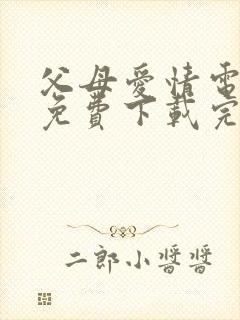 父母愛情電
免費下載完
二郎小醬醬